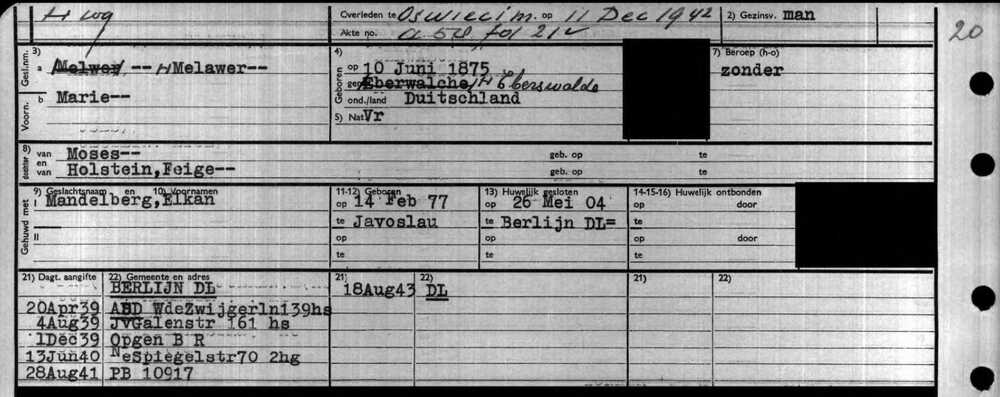 Overleden te Oswiecim. op 11 Dec 1942
2) Gezinsv. man
Akte no. a 58 fol 21v
20
Gesl.nm. 3)
a Melwer -- H Melawer--
Voorn. b Marie--
4)
Geboren op 10 Juni 1875
gem Eberwalche H Eberswalde
ond./land Duitschland
5) Nat Vr
7) Beroep (h-o)
zonder
8) dochter van Moses-- geb. op te
en
van Holstein,Feige-- geb. op te
9) Geslachtsnaam en 10) Voornamen
Gehuwd met I Mandelberg,Elkan
II
11-12) Geboren
op 14 Feb 77
te Javoslau
op
te
13) Huwelijk gesloten
op 26 Mei 04
te Berlijn DL=
op
te
14-15-16) Huwelijk ontbonden
op door
te
op door
te
21) Dagt. aangifte 22) Gemeente en adres
BERLIJN DL
20Apr39 ABD WdeZwijgerln139hs
4Aug39 JvGalenstr 161 hs
1Dec39 Opgen B R
13Jun40 NeSpiegelstr70 2hg
28Aug41 PB 10917
21) 22)
18Aug43 DL
21) 22)